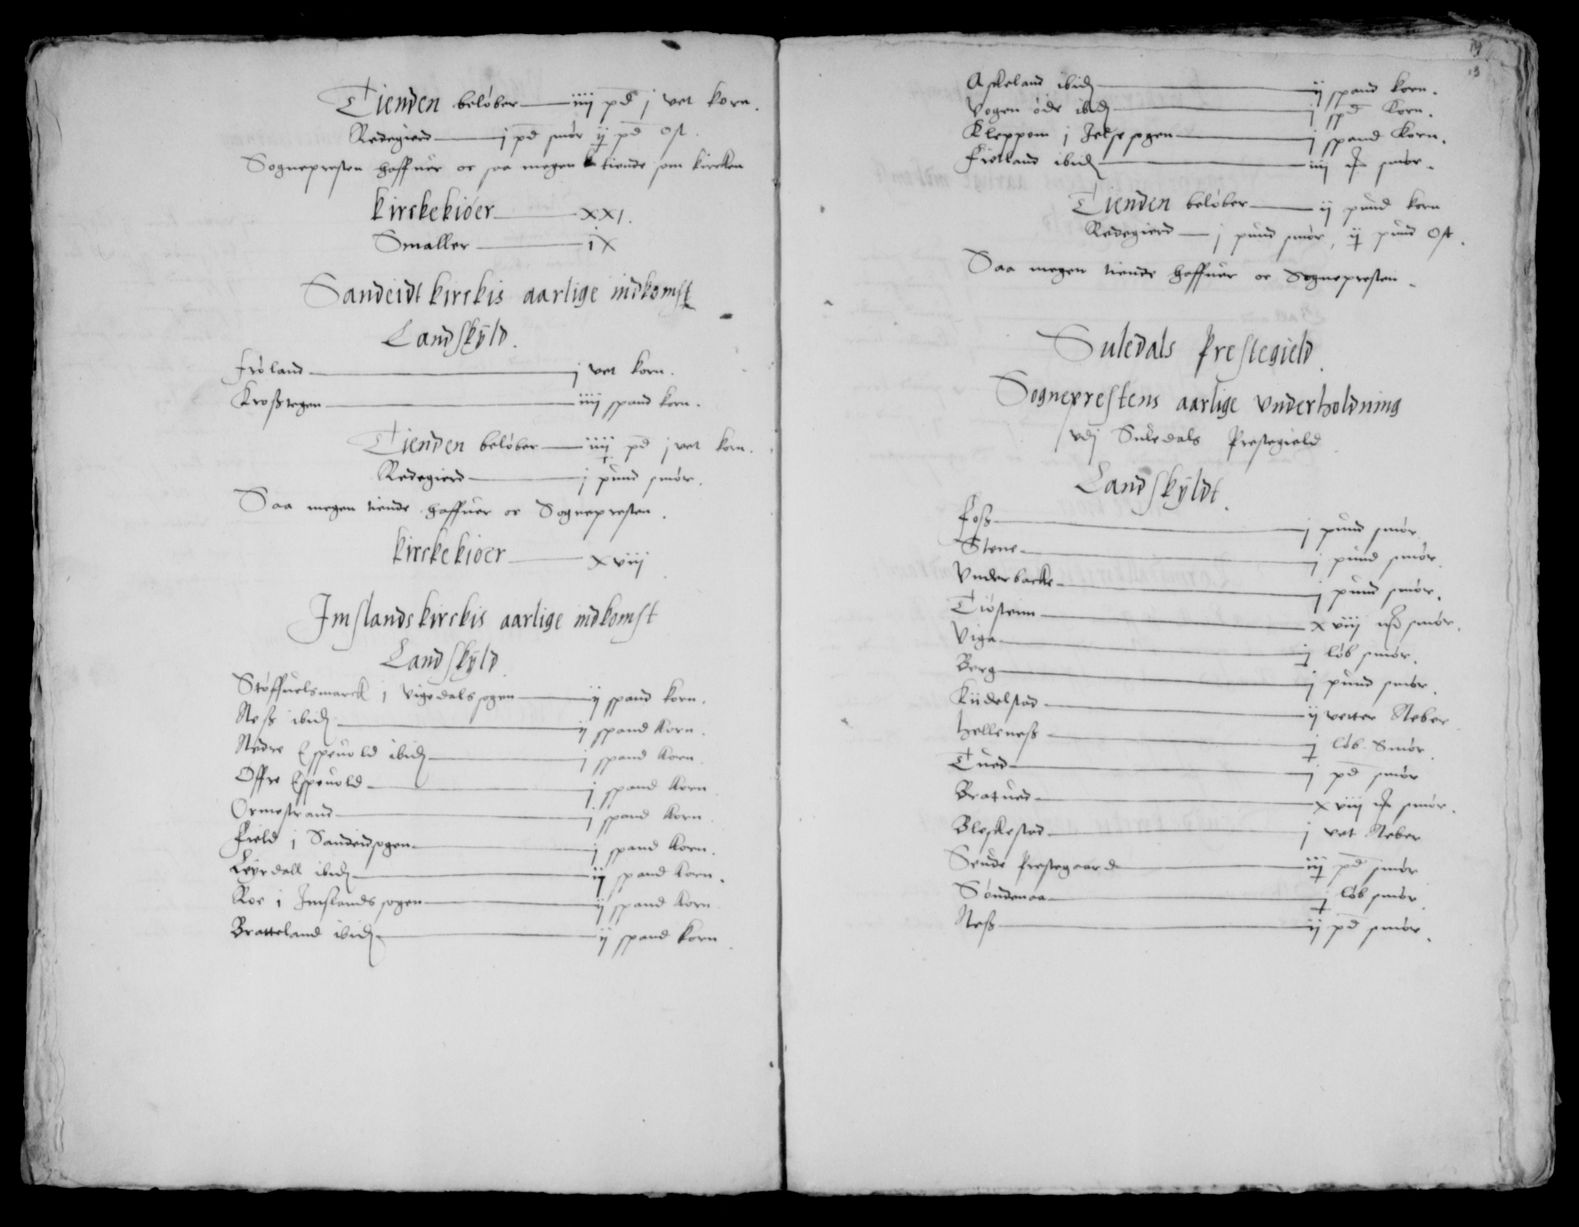 Tienden beløber — iiij pd j vet korn.
Redegierd — j pd smør ij pd Ost.
Sognepresten haffuer oc saa megen tiende som kircken
Kirckekiöer — xxj.
Smaller — ix
Sandeidt kirckis aarlige indkomst
Landskÿld.
Fröland — j vet korn.
Kroßtegen — iiij spand korn.
Tienden beløber — iiij pd j vet korn.
Redegierd — j pund smör.
Saa megen tiende haffuer oc Sognepresten.
Kirckekiöer — xviij
Imslands kirckis aarlige indkomst
Landskÿld
Støffuelsmarck i Vigedals sogen — ij spand korn.
Neß ibid — ij spand korn.
Nedre Espeuold ibid — j spand korn
Offre Espeuold — j spand korn
Ormestrand — j spand korn
Field i Sandeidsogen — j spand korn.
Leyrdall ibid — ij spand korn.
Roe i Imslands sogen — ij spand korn
Bratteland ibid — ij spand korn
19
13
Askeland ibid — ij spand korn.
Vogen øde ibid — j spd korn.
Kleppom i Jelse sogen — j spand korn.
Fröland ibid — iiij smör.
Tienden beløber — ij pund korn
Redegierd — j pund smör, ij pund Ost.
Saa megen tiende haffuer oc Sognepresten.
Suledals Prestegield.
Sogneprestens aarlige Vnderholdning
vdj Suledals Prestegield
Landskÿldt.
Foß — j pund smör
Stene — j pund smör.
Vnderbacke — j pund smör.
Tiøsteim — xviij smör.
Viga — j løb smör.
Berg — j pund smör.
Kiidelstad — ij vetter Neber
Helleneß — j løb Smör.
Tued — j pd smör
Bratued — xviij smör.
Bleskestad — j vet Neber
Sende Prestegaard — iij pd smör
Søndenaa — j løb smör
Neß — ij pd smör.